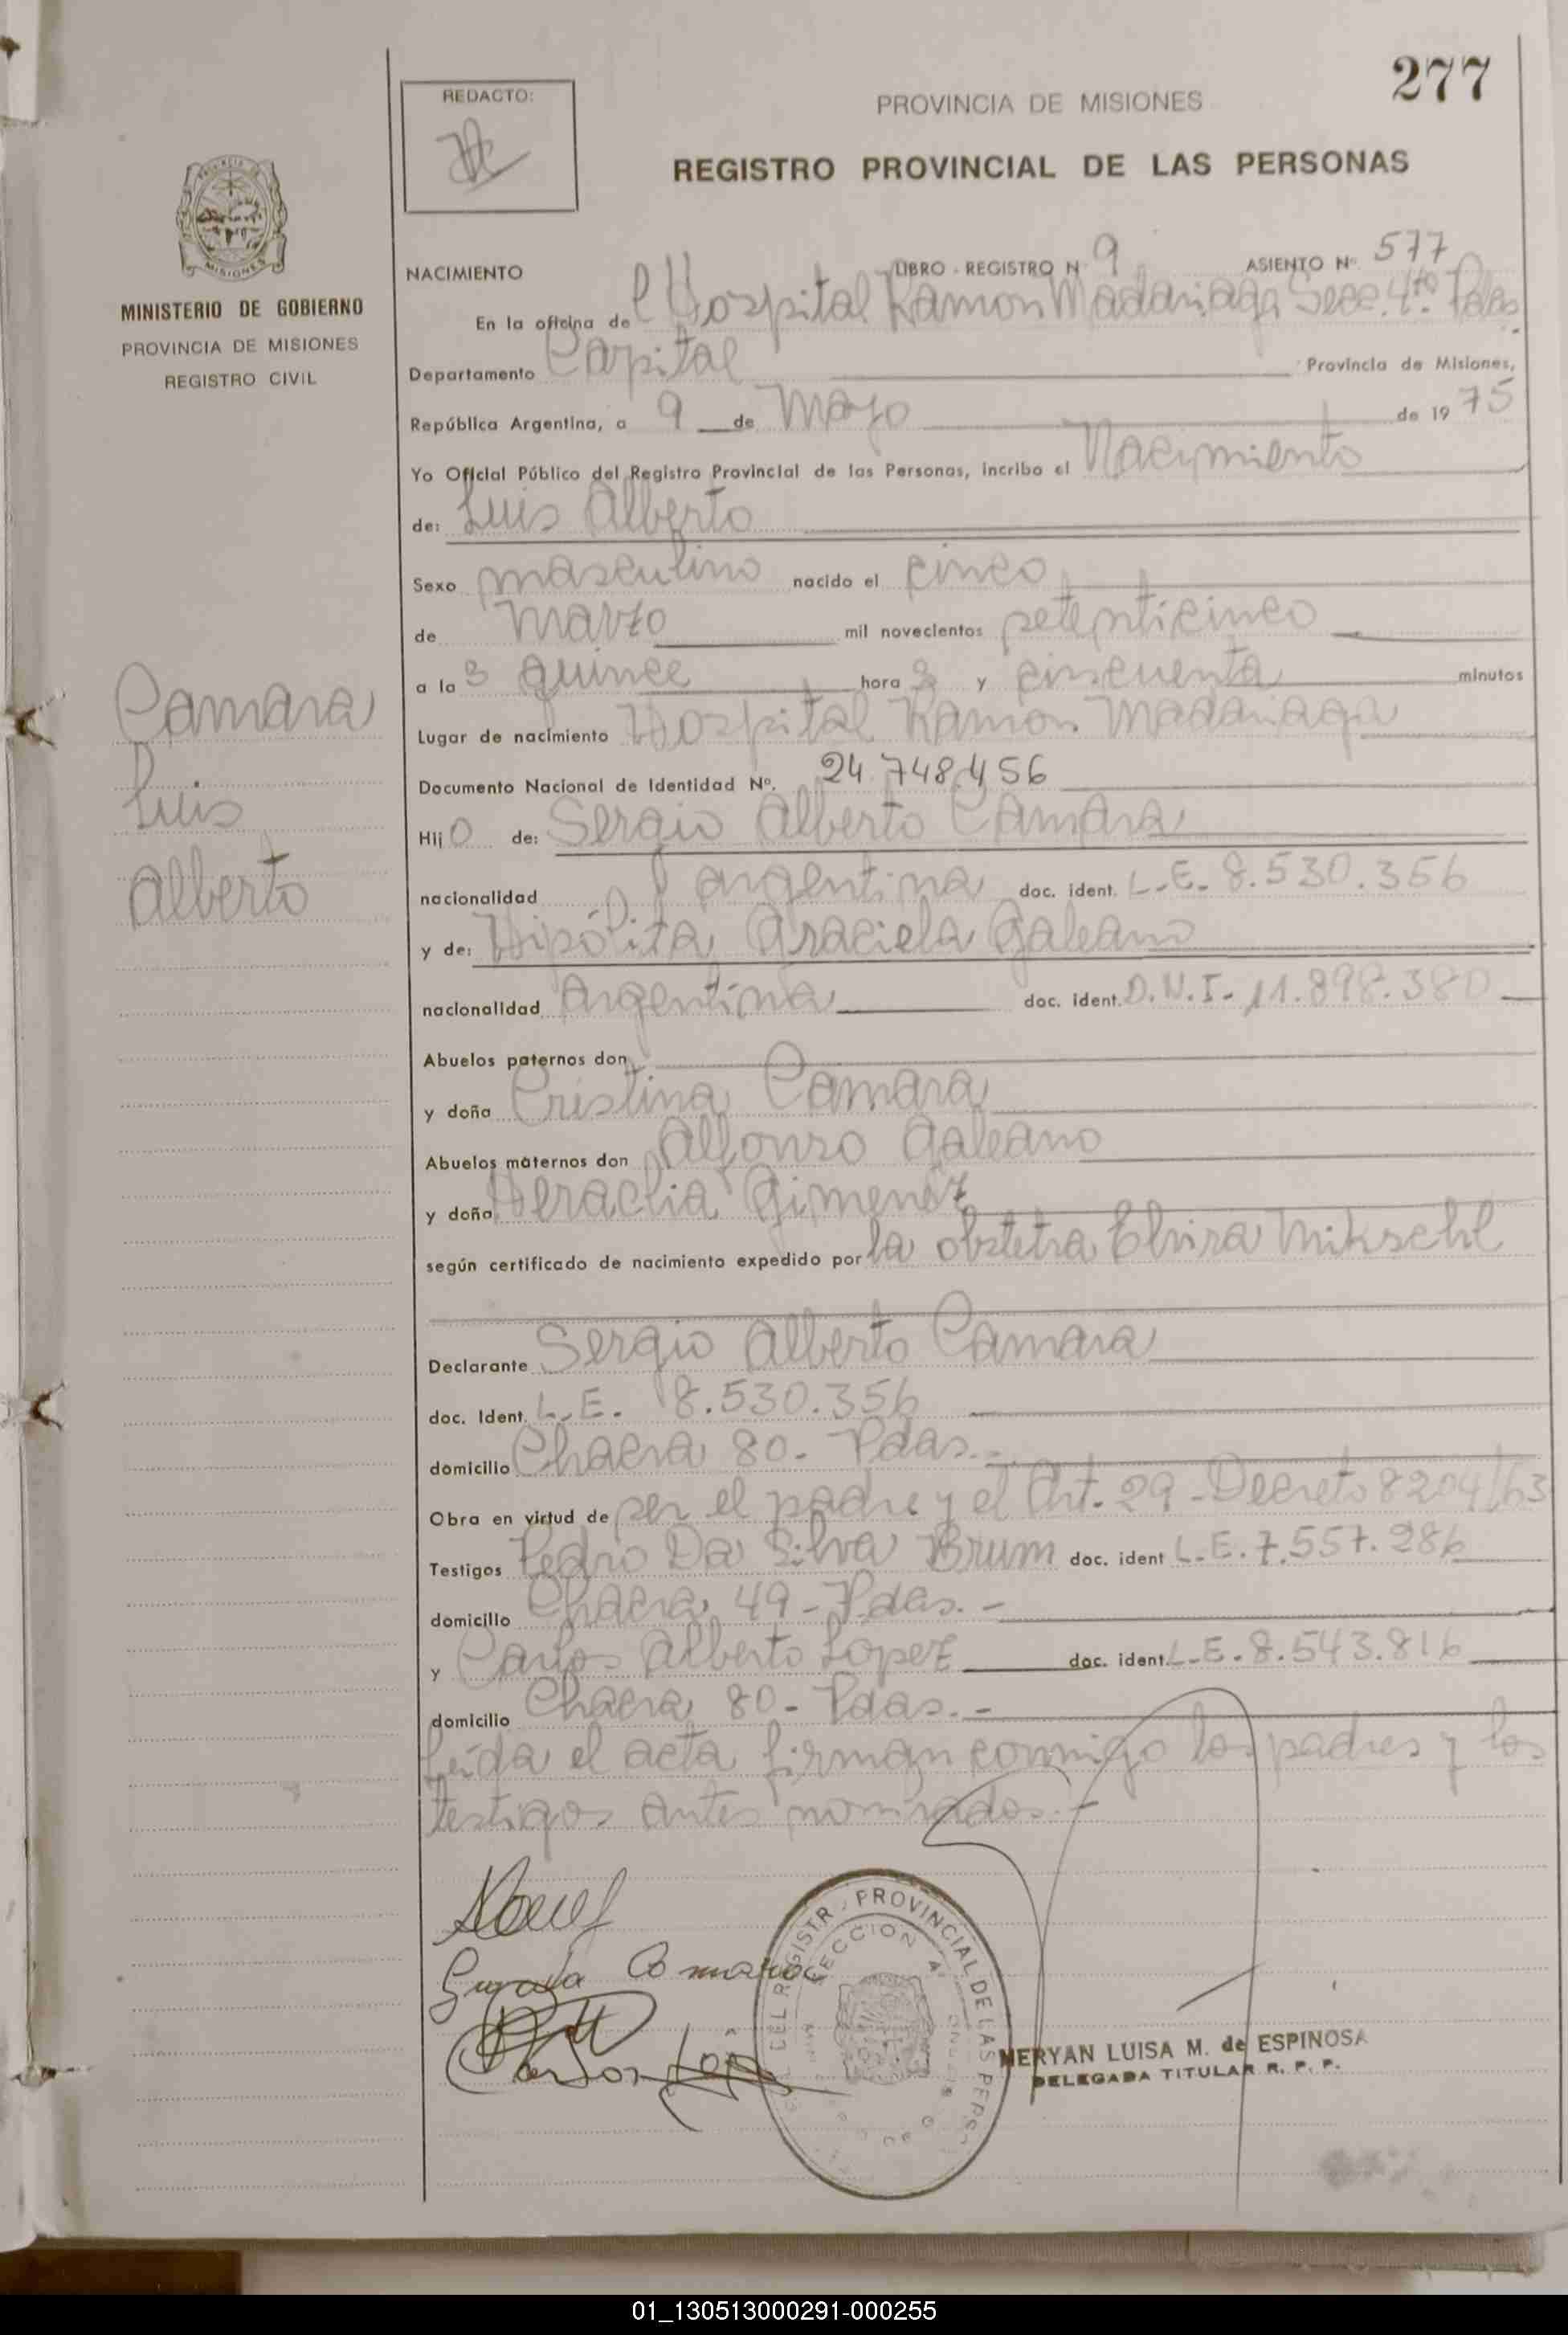 277
REDACTO:
PROVINCIA DE MISIONES
REGISTRO PROVINCIAL DE LAS PERSONAS
MINISTERIO DE GOBIERNO
PROVINCIA DE MISIONES
REGISTRO CIVIL
NACIMIENTO LIBRO - REGISTRO N 9 ASIENTO Nº 577
En la oficina de l Hospital Ramon Madariaga Secc. 4ta Pdas
Departamento Capital Provincia de Misiones,
República Argentina, a 9 de Mayo de 1975
Yo Oficial Público del Registro Provincial de las Personas, incribo el Nacimiento
de: Luis Alberto
Sexo masculino nacido el cinco
de Marzo mil novecientos setenticinco
a las quince horas y cincuenta minutos
Lugar de nacimiento Hospital Ramon Madariaga
Documento Nacional de Identidad Nº. 24.748.456
Hijo de: Sergio Alberto Camara
nacionalidad argentina doc. ident. L.E. 8.530.356
y de: Hipólita Graciela Galeano
nacionalidad Argentina doc. ident. D.N.I- 11.898.380
Abuelos paternos don
y doña Cristina Camara
Abuelos maternos don Alfonso Galeano
y doña Heraclia Gimenez
según certificado de nacimiento expedido por la obstetra Elvira Mikschl
Declarante Sergio Alberto Camara
doc. Ident. L.E. 8.530.356
domicilio Chacra 80- Pdas.-
Obra en virtud de ser el padre y el Art. 29 - Decreto 8204/63
Testigos Pedro Da Silva Brum doc. ident L.E. 7.557.286
domicilio Chacra 49 - Pdas. -
y Carlos Alberto Lopez doc. ident. L.E. 8.543.816
domicilio Chacra 80 - Pdas. -
Leida el acta firman conmigo los padres y los
testigos antes nombrados.-
Camara
Luis
Alberto
REGISTR. PROVINCIAL DE LAS PERS
SECCION 4ª
MERYAN LUISA M. de ESPINOSA
DELEGADA TITULAR R. P. P.
01_130513000291-000255